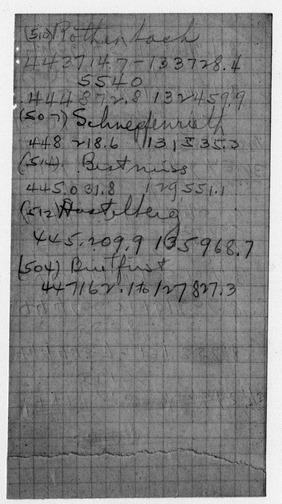 (510) Rothenbach
443714.7-133728.4
5540
444872.8 132459.9
(507) Schneefenrieth
448 218.6 131535.3
(514)
445.031.8 129551.1
(512) Hastelberg
445.209.9 135968.7
(504) Breitfirst
447162.1 to 127827.3